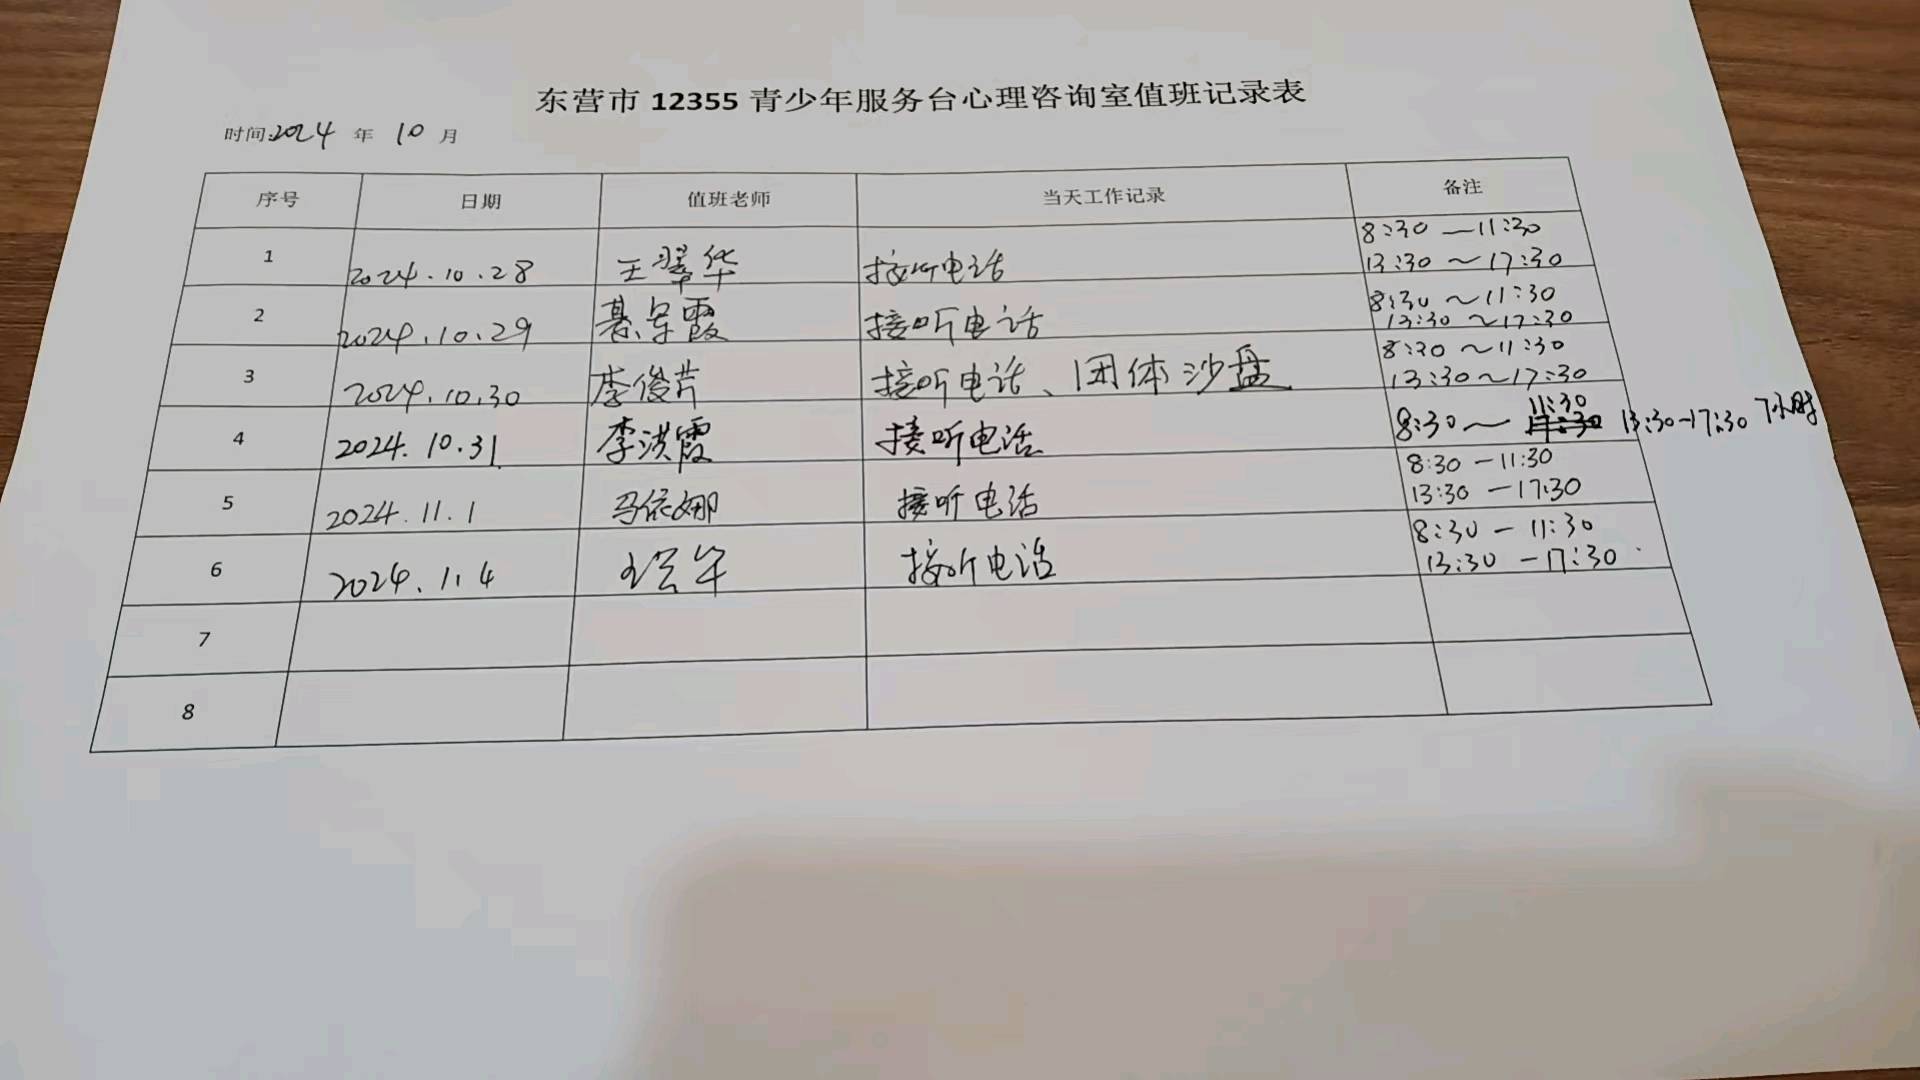 东营市 12355 青少年服务台心理咨询室值班记录表
时间:2024 年 10 月
序号 日期 值班老师 当天工作记录 备注
1 2024.10.28 王翠华 接听电话 8:30—11:30
13:30~17:30
2 2024.10.29 霞 接听电话 8:30~11:30
13:30~17:30
3 2024.10.30 李俊芹 接听电话、团体沙盘 8:30~11:30
13:30~17:30
4 2024.10.31 李洪霞 接听电话 8:30~11:30 13:30-17:30 7小时
5 2024.11.1 马依娜 接听电话 8:30-11:30
13:30-17:30
6 2024.1.4 接听电话 8:30-11:30
13:30-17:30
7
8